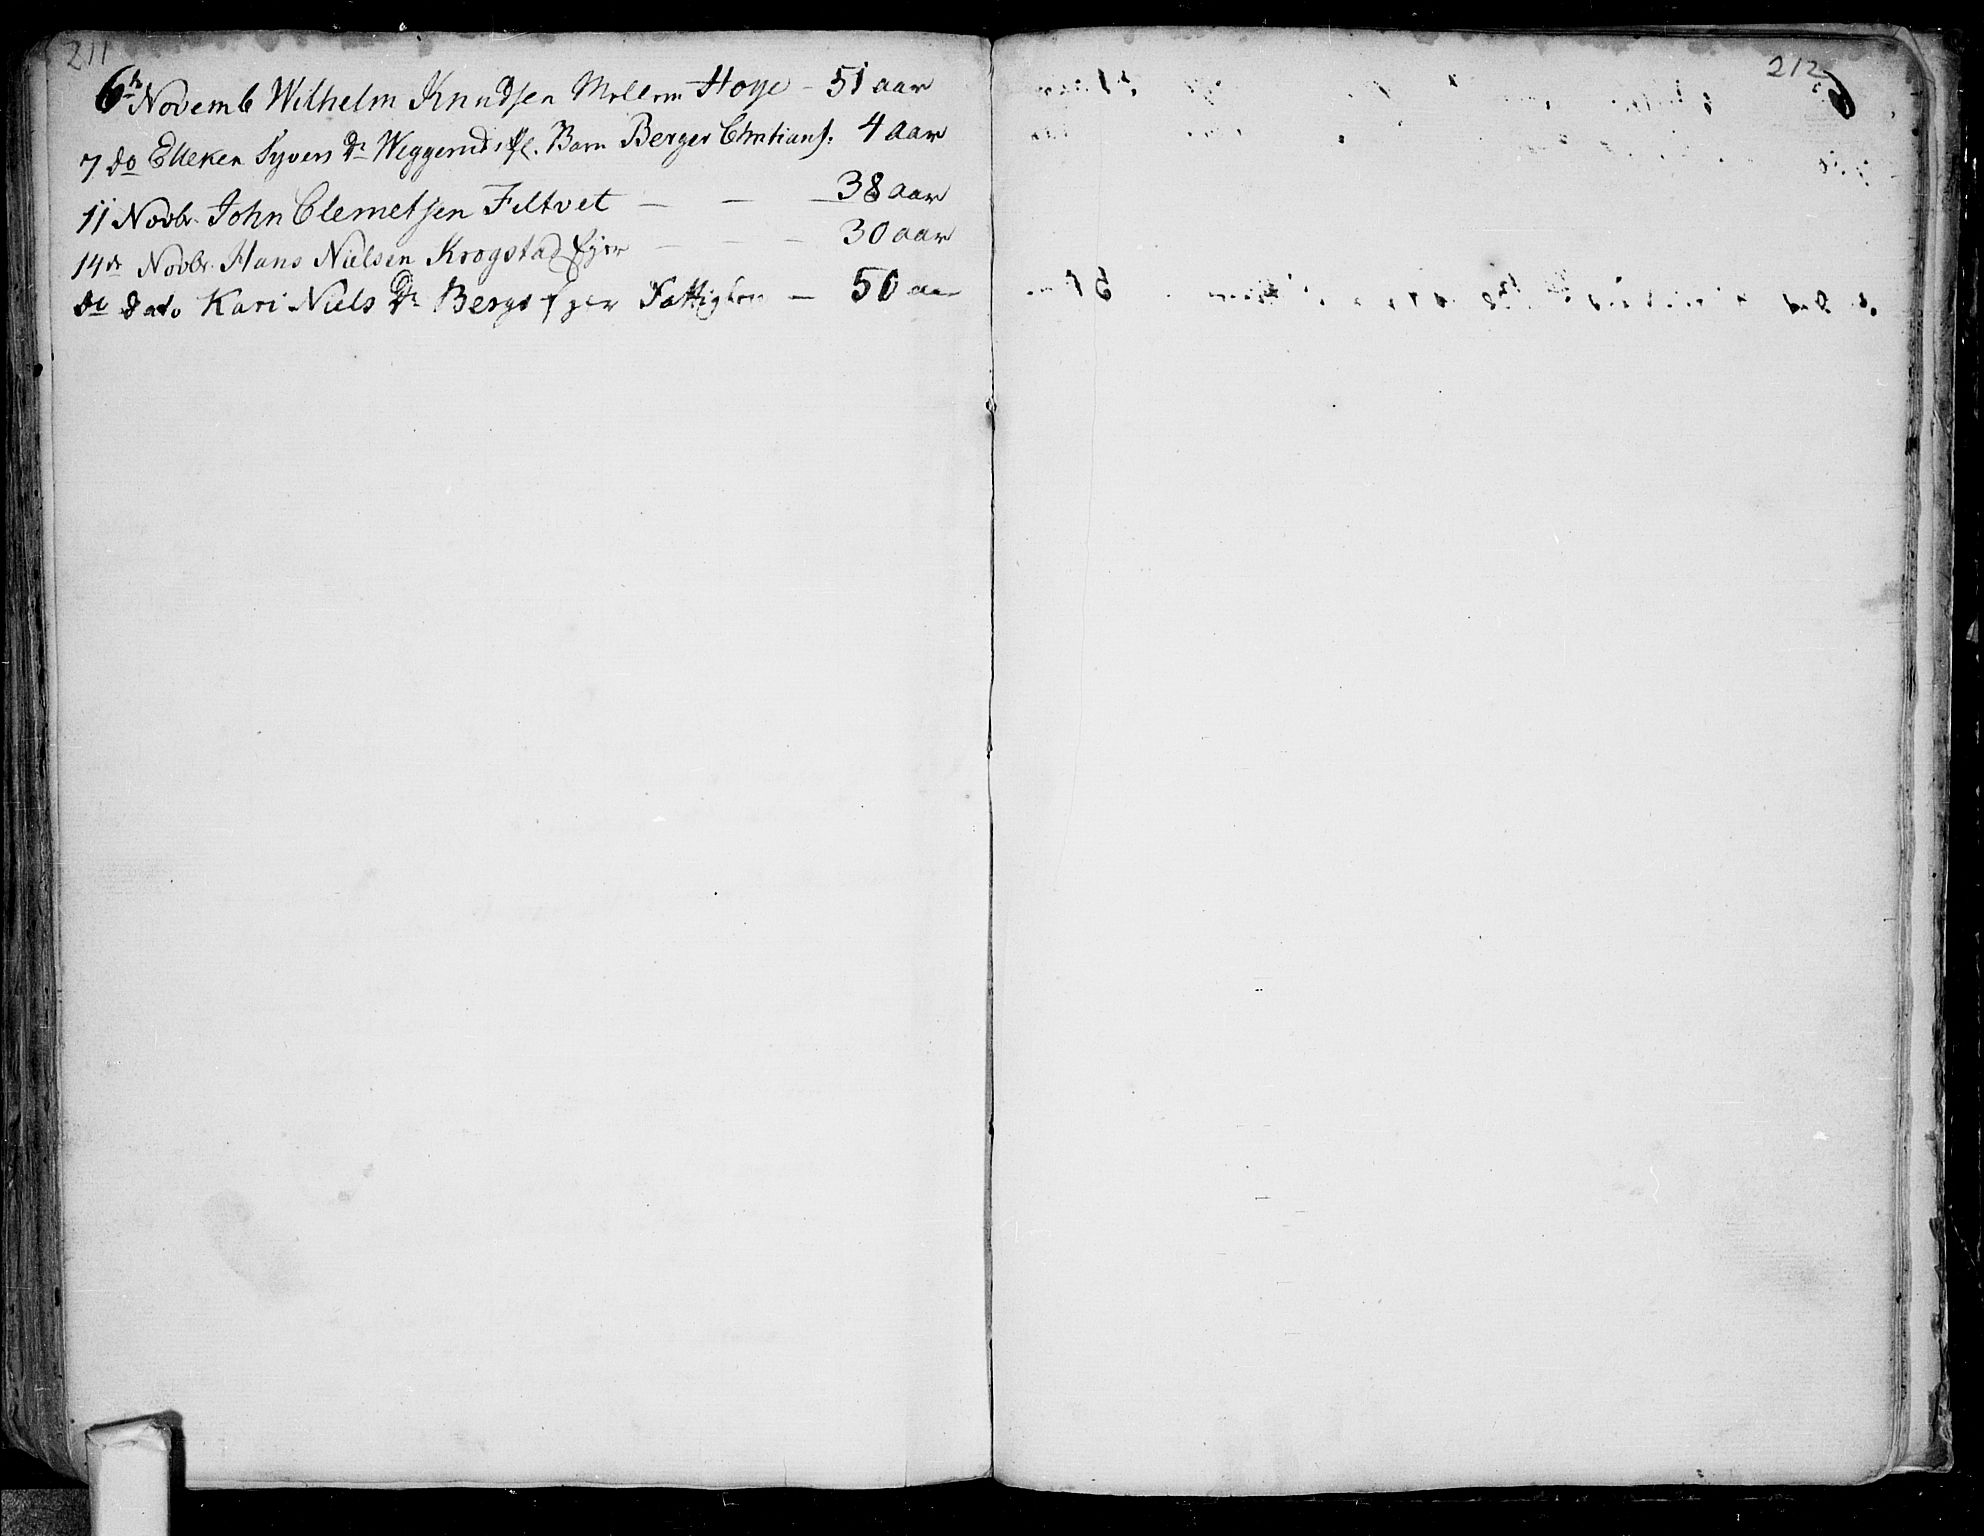 211
6te Novemb Wilhelm Knudsen Mellom Hoye - 51 aar
7 do Elleken Syvers Dr Weggerud, pl. Barn Berger Christians: 4 aar
11 Novbr. John Clemetsen Filtvet — — — 38 aar
14de Novbr. Hans Nielsen Krogstad Ejer — — — 30 aar
de dato Kari Niels Dr Bergs Ejer Fattiglem — 50 aar
212